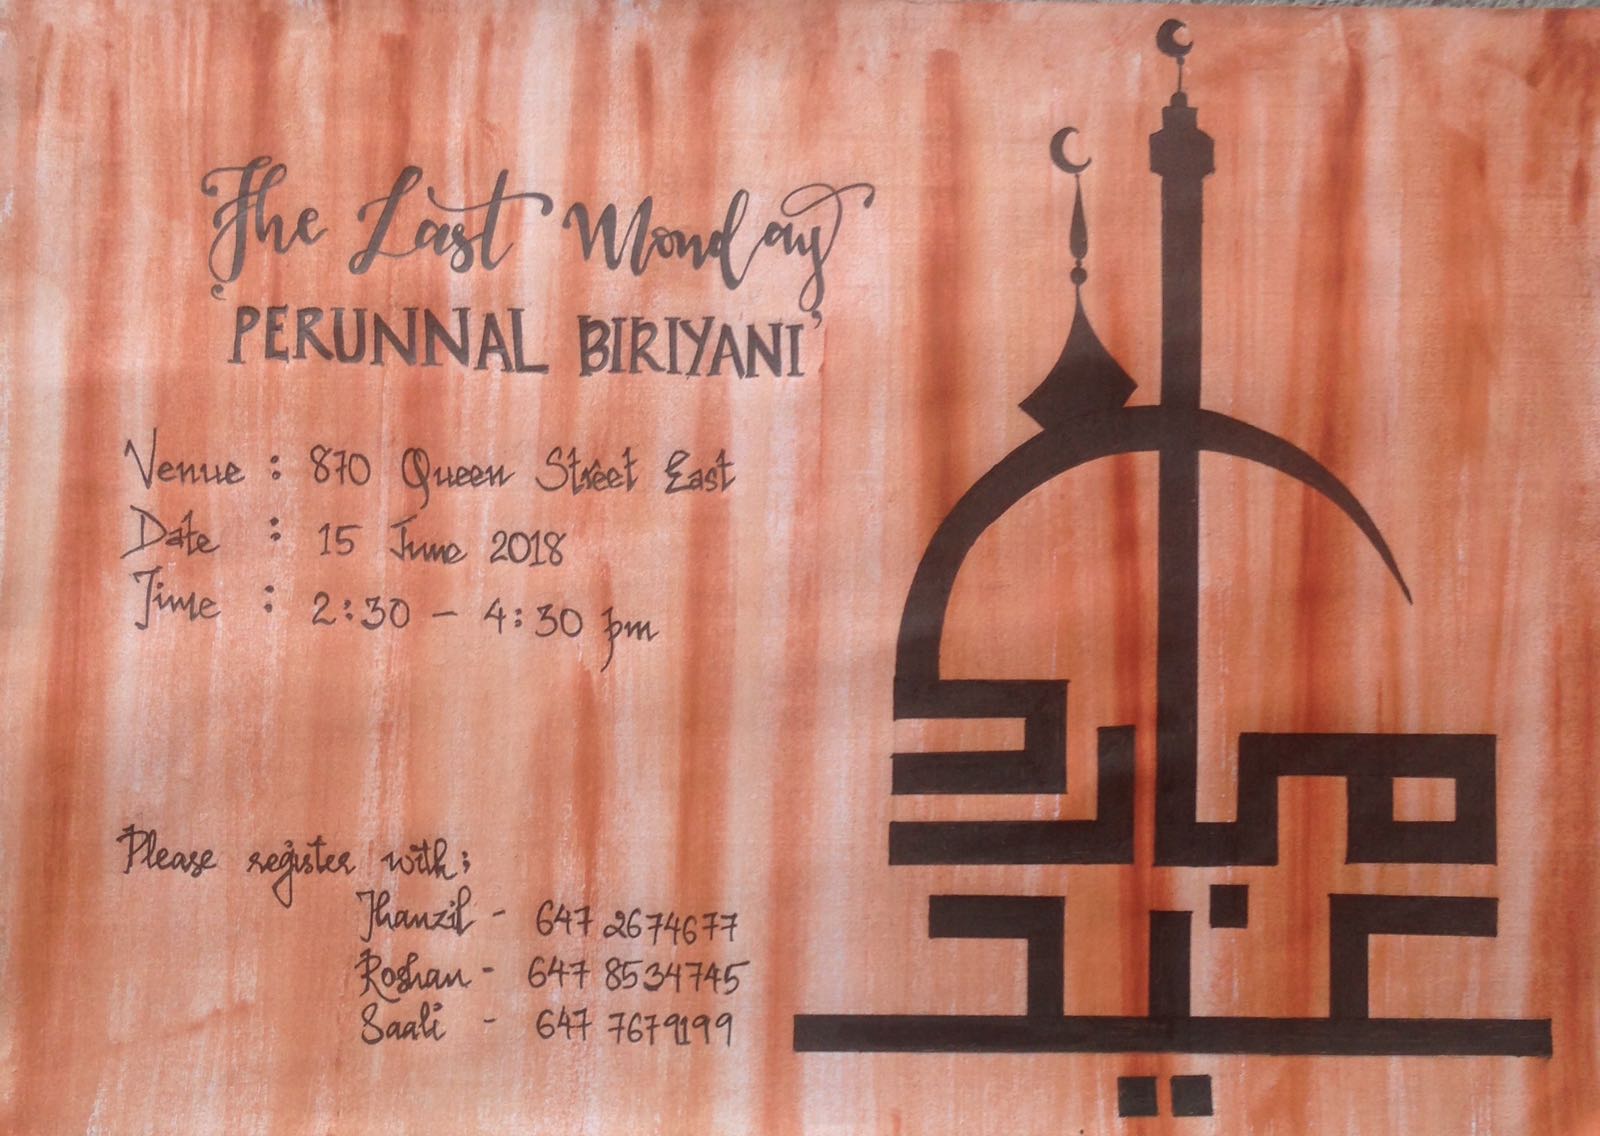 The Last Monday
'PERUNNAL BIRIYANI'
Venue : 870 Queen Street East
Date : 15 June 2018
Time : 2:30 - 4:30 pm
Please register with:
Thanzil - 647 2674677
Roshan - 647 8534745
Saali - 647 7679199
عيد
مبارك